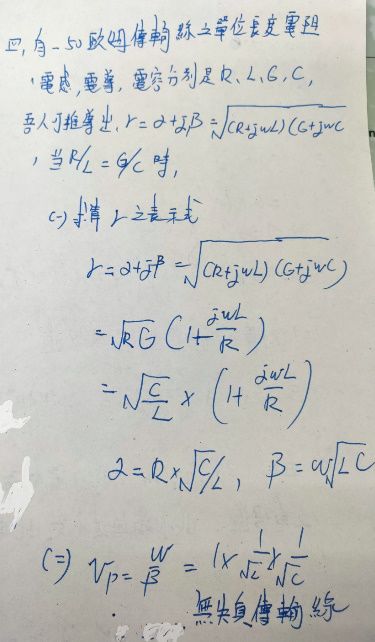 四, 有一50歐姆傳輸線之單位長度電阻
, 電感, 電導, 電容分別是R、L、G、C,
吾人可推導出, r=α+jβ=√(R+jwL)(G+jwC
, 當 R/L = G/C 時,
(一)計算 r 之表示式
r=α+jβ=√(R+jwL)(G+jwC)
=√RG (1+jwL/R)
=√C/L × (1+jwL/R)
α=R×√C/L, β=w√LC
(二) Vp=w/β=1×1/√L×1/√C
無失真傳輸線